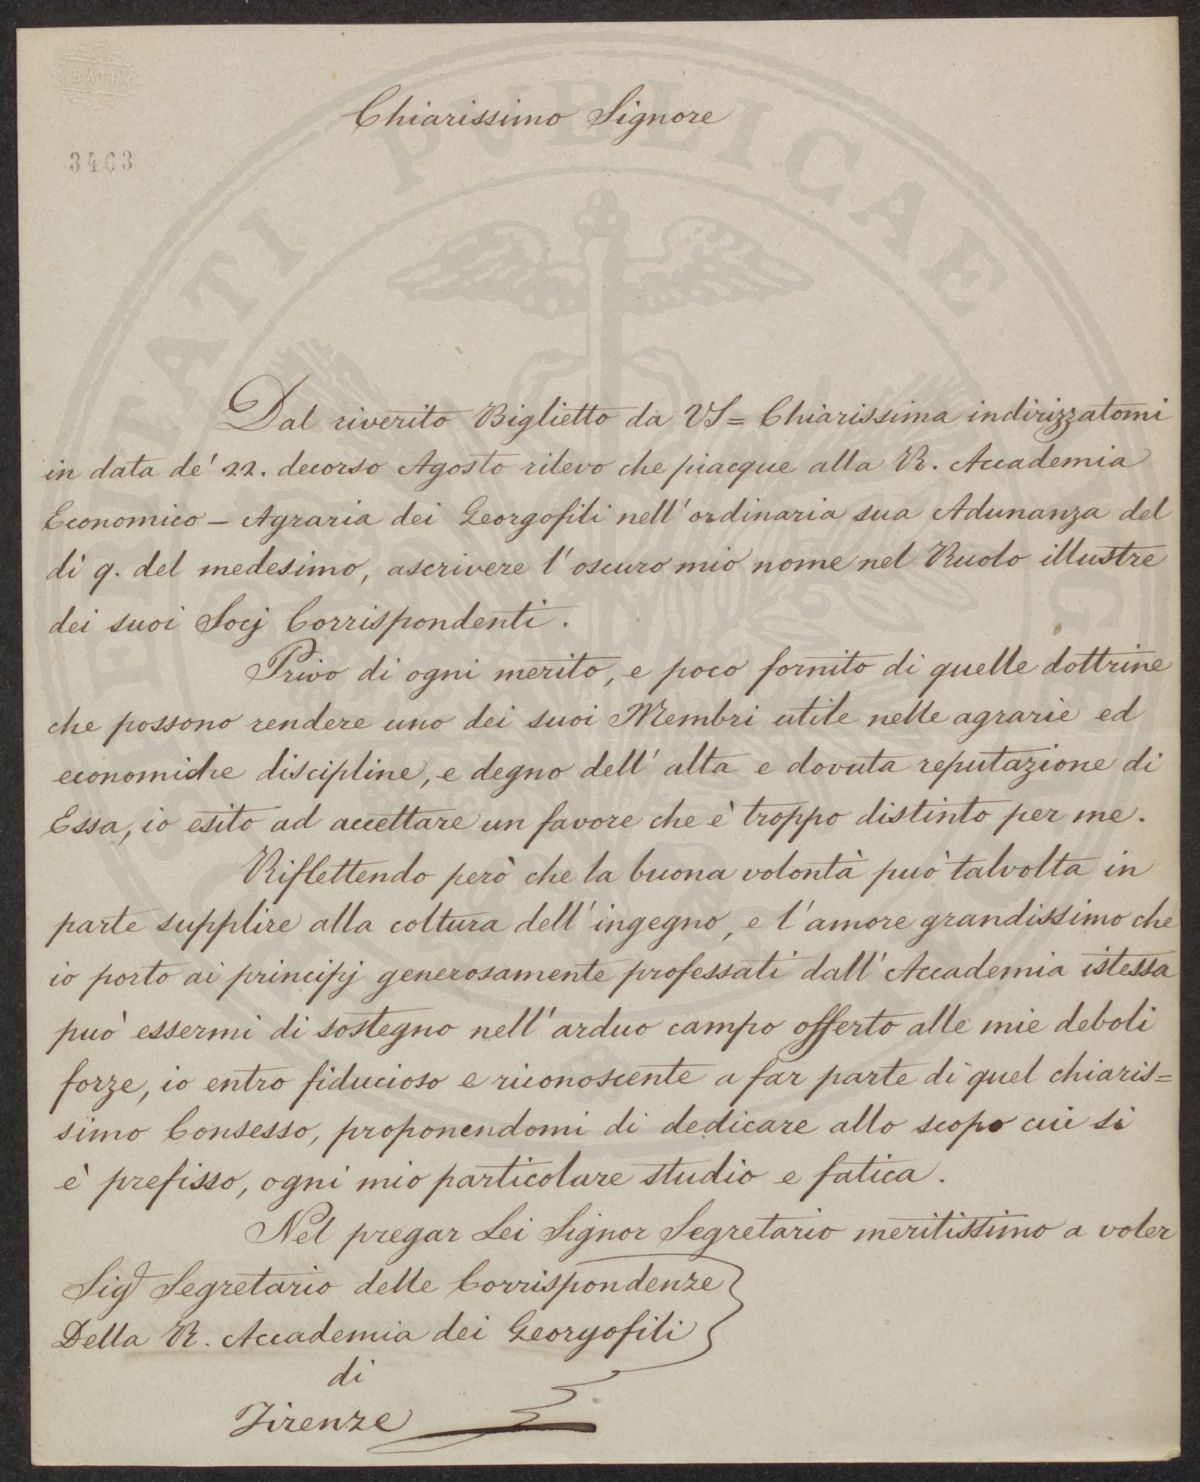 BATH
3463
Chiarissimo Signore
Dal riverito Biglietto da VS= Chiarissima indirizzatomi
in data de' 22. decorso Agosto rilevo che piacque alla R. Accademia
Economico - Agraria dei Georgofili nell' ordinaria sua Adunanza del
dì 9. del medesimo, ascrivere l' oscuro mio nome nel Ruolo illustre
dei suoi Socj Corrispondenti.
Privo di ogni merito, e poco fornito di quelle dottrine
che possono rendere uno dei suoi Membri utile nelle agrarie ed
economiche discipline, e degno dell' alta e dovuta reputazione di
Essa, io esito ad accettare un favore che è troppo distinto per me.
Riflettendo però che la buona volontà può talvolta in
parte supplire alla coltura dell' ingegno, e l' amore grandissimo che
io porto ai principj generosamente professati dall' Accademia istessa
può essermi di sostegno nell' arduo campo offerto alle mie deboli
forze, io entro fiducioso e riconoscente a far parte di quel chiaris=
simo Consesso, proponendomi di dedicare allo scopo cui si
è prefisso, ogni mio particolare studio e fatica.
Nel pregar Lei Signor Segretario meritissimo a voler
Sig.r Segretario delle Corrispondenze
Della R. Accademia dei Georgofili
di
Firenze